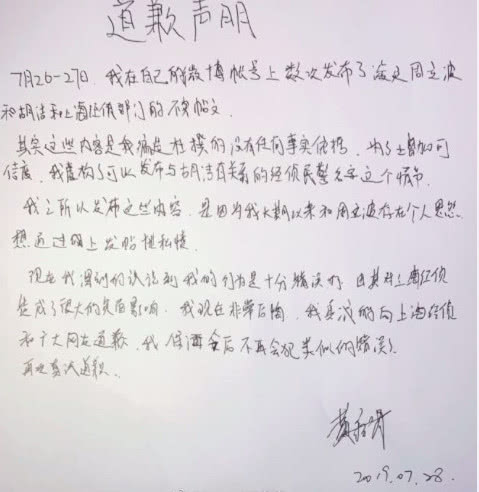 道歉声明
7月26-27日，我在自己的微博帐号上数次发布了涉及周立波
和胡洁和上海经侦部门的不实帖文.
其实这些内容是我编造杜撰的没有任何事实依据，为了增加可
信度，我虚构了可以发布与胡洁有关系的经侦民警名字这个情节.
我之所以发布这些内容，是因为我长期以来和周立波存在个人恩怨
想通过网上发帖泄私愤.
现在我深刻的认识到我的行为是十分错误的，由其对上海经侦
造成了很大的负面影响，我现在非常后悔，我真诚的向上海经侦
和广大网友道歉，我保证今后不再会犯类似的错误！
再次真诚道歉.
黄毅清
2019.07.28.